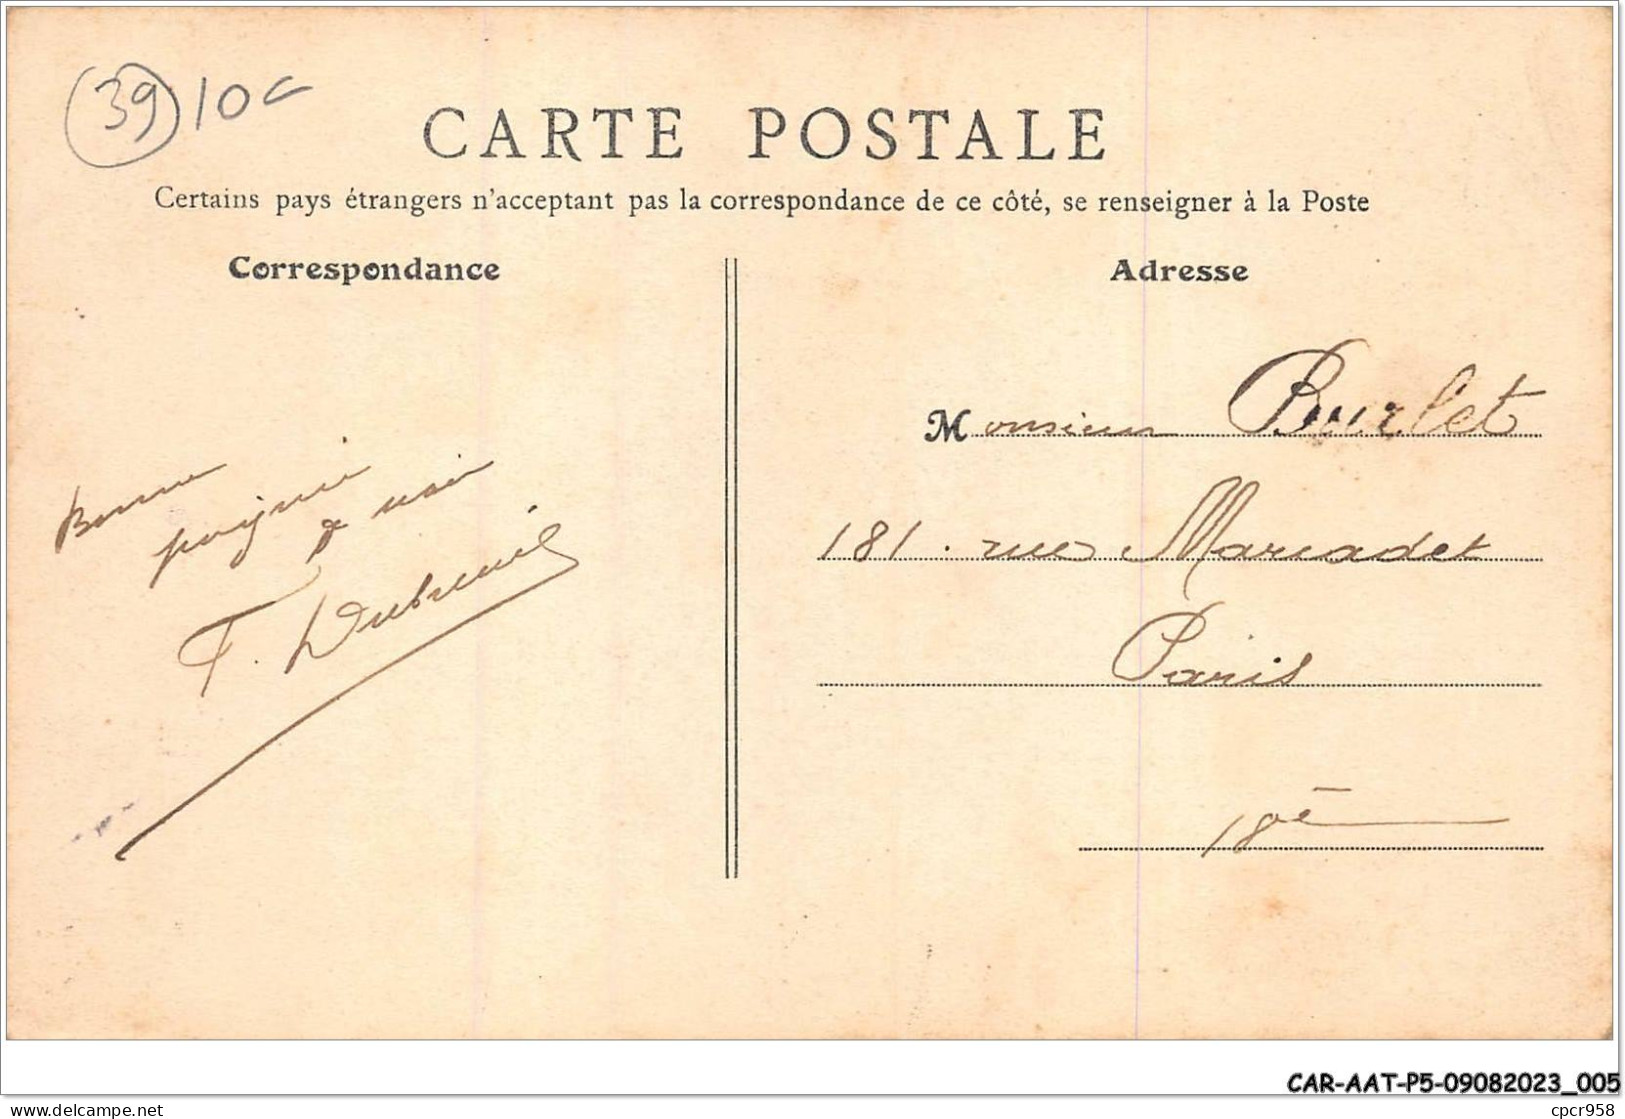 39 10c
CARTE POSTALE
Certains pays étrangers n'acceptant pas la correspondance de ce côté, se renseigner à la Poste
Correspondance
Adresse
Monsieur Burlet
181. rue Marcadet
Paris
18è
Bonne
poignée
de main
F. Dubreuil
CAR-AAT-P5-09082023_005
delcampe.net
cpcr958